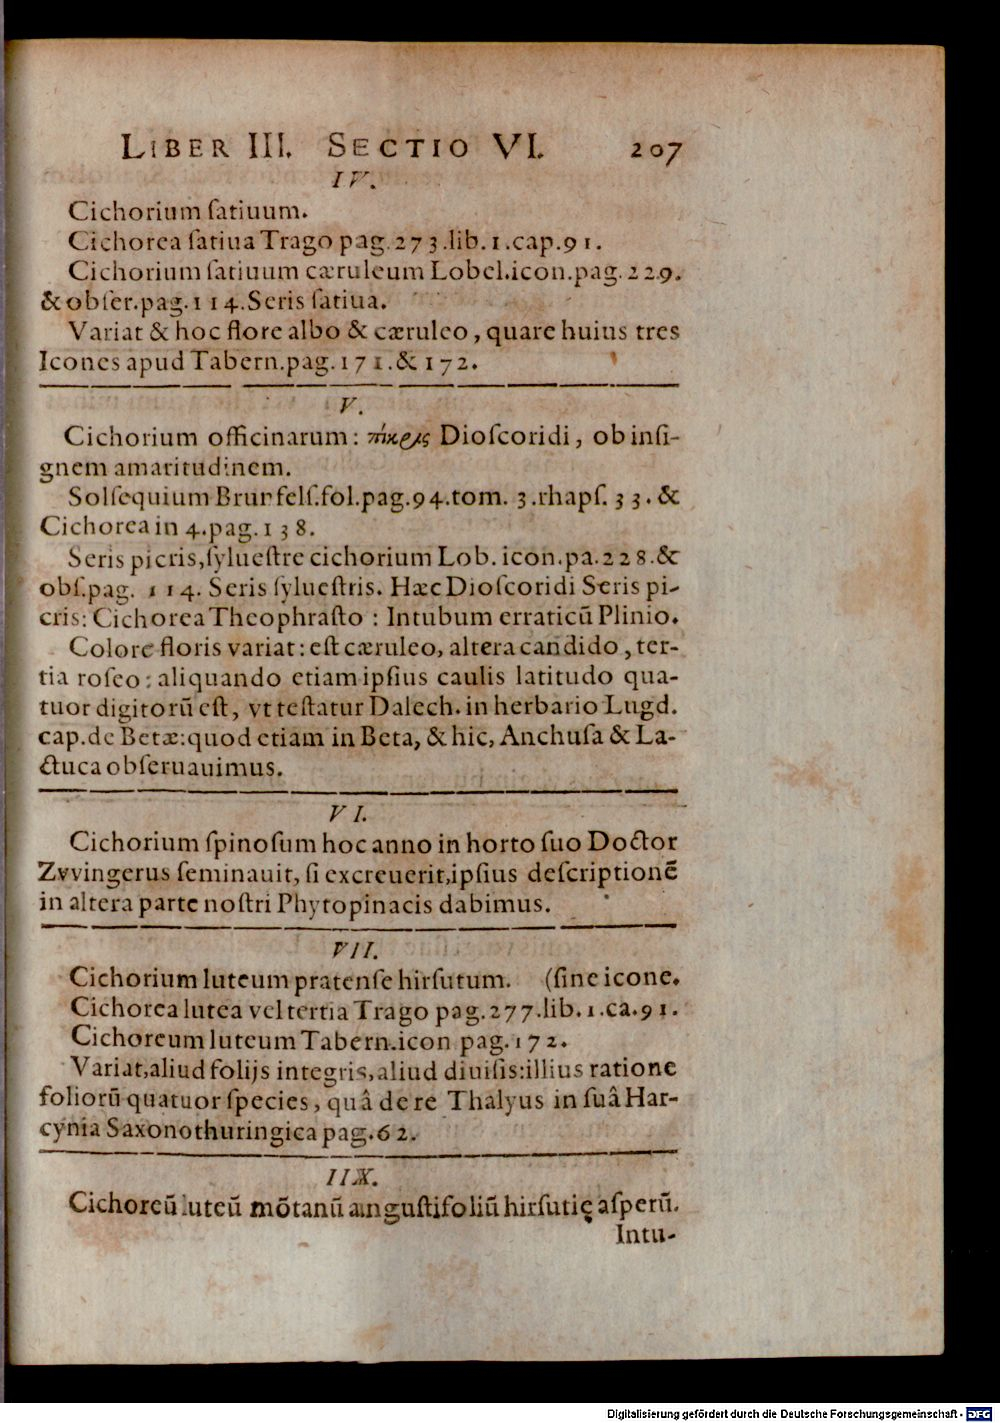 LIBER III. SECTIO VI. 207
IV.
Cichorium ſatiuum.
Cichorea ſatiua Trago pag. 273. lib. 1. cap. 91.
Cichorium ſatiuum cæruleum Lobel. icon. pag. 229.
& obſer. pag. 114. Seris ſatiua.
Variat & hoc flore albo & cæruleo, quare huius tres
Icones apud Tabern. pag. 171. & 172.
V.
Cichorium officinarum: πίκρις Dioſcoridi, ob inſi-
gnem amaritudinem.
Solſequium Brunfelſ. fol. pag. 94. tom. 3. rhapſ. 33. &
Cichorea in 4. pag. 138.
Seris picris, ſylueſtre cichorium Lob. icon. pa. 228. &
obſ. pag. 114. Seris ſylueſtris. Hæc Dioſcoridi Seris pi-
cris: Cichorea Theophraſto: Intubum erraticũ Plinio.
Colore floris variat: eſt cæruleo, altera candido, ter-
tia roſeo: aliquando etiam ipſius caulis latitudo qua-
tuor digitorũ eſt, vt teſtatur Dalech. in herbario Lugd.
cap. de Betæ: quod etiam in Beta, & hic, Anchuſa & La-
ctuca obſeruauimus.
VI.
Cichorium ſpinoſum hoc anno in horto ſuo Doctor
Zvvingerus ſeminauit, ſi excreuerit, ipſius deſcriptionẽ
in altera parte noſtri Phytopinacis dabimus.
VII.
Cichorium luteum pratenſe hirſutum. (ſine icone.
Cichorea lutea vel tertia Trago pag. 277. lib. 1. ca. 91.
Cichoreum luteum Tabern. icon pag. 172.
Variat, aliud folijs integris, aliud diuiſis: illius ratione
foliorũ quatuor ſpecies, quâ de re Thalyus in ſuâ Har-
cynia Saxonothuringica pag. 62.
IIX.
Cichoreũ luteũ mõtanũ anguſtifoliũ hirſutię aſperũ.
Intu-
Digitalisierung gefördert durch die Deutsche Forschungsgemeinschaft - DFG